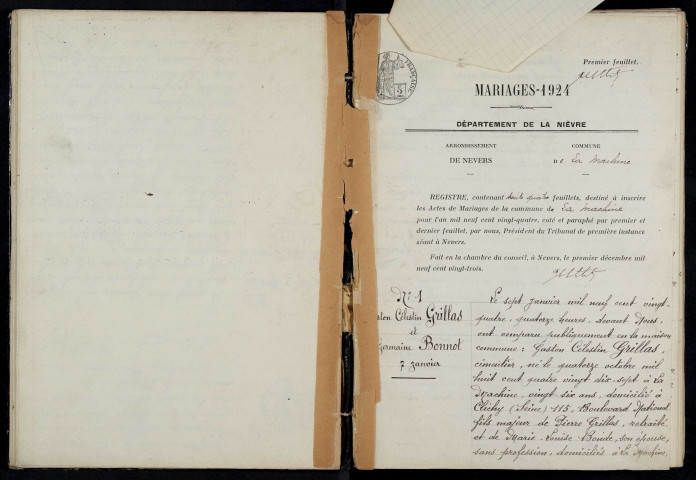 Premier feuillet.
MARIAGES-1924
DÉPARTEMENT DE LA NIÈVRE
ARRONDISSEMENT
DE NEVERS
COMMUNE
DE La Machine
REGISTRE, contenant trente quatre feuillets, destiné à inscrire
les Actes de Mariages de la commune de La Machine
pour l'an mil neuf cent vingt-quatre, coté et paraphé par premier et
dernier feuillet, par nous, Président du Tribunal de première instance
séant à Nevers.
Fait en la chambre du conseil, à Nevers, le premier décembre mil
neuf cent vingt-trois.
N° 1
ston Célestin Grillas
et
ermaine Bonnot
7 janvier
Le sept janvier mil neuf cent vingt-
quatre, quatorze heures, devant Nous
ont comparu publiquement en la maison
commune : Gaston Célestin Grillas,
cimentier, né le quatorze octobre mil
huit cent quatre vingt dix-sept à La
Machine, vingt six ans, domicilié à
Clichy (Seine) 115, Boulevard National
fils majeur de Pierre Grillas, retraité
et de Marie Louise Bonde, son épouse,
sans profession, domiciliés à La Machine,